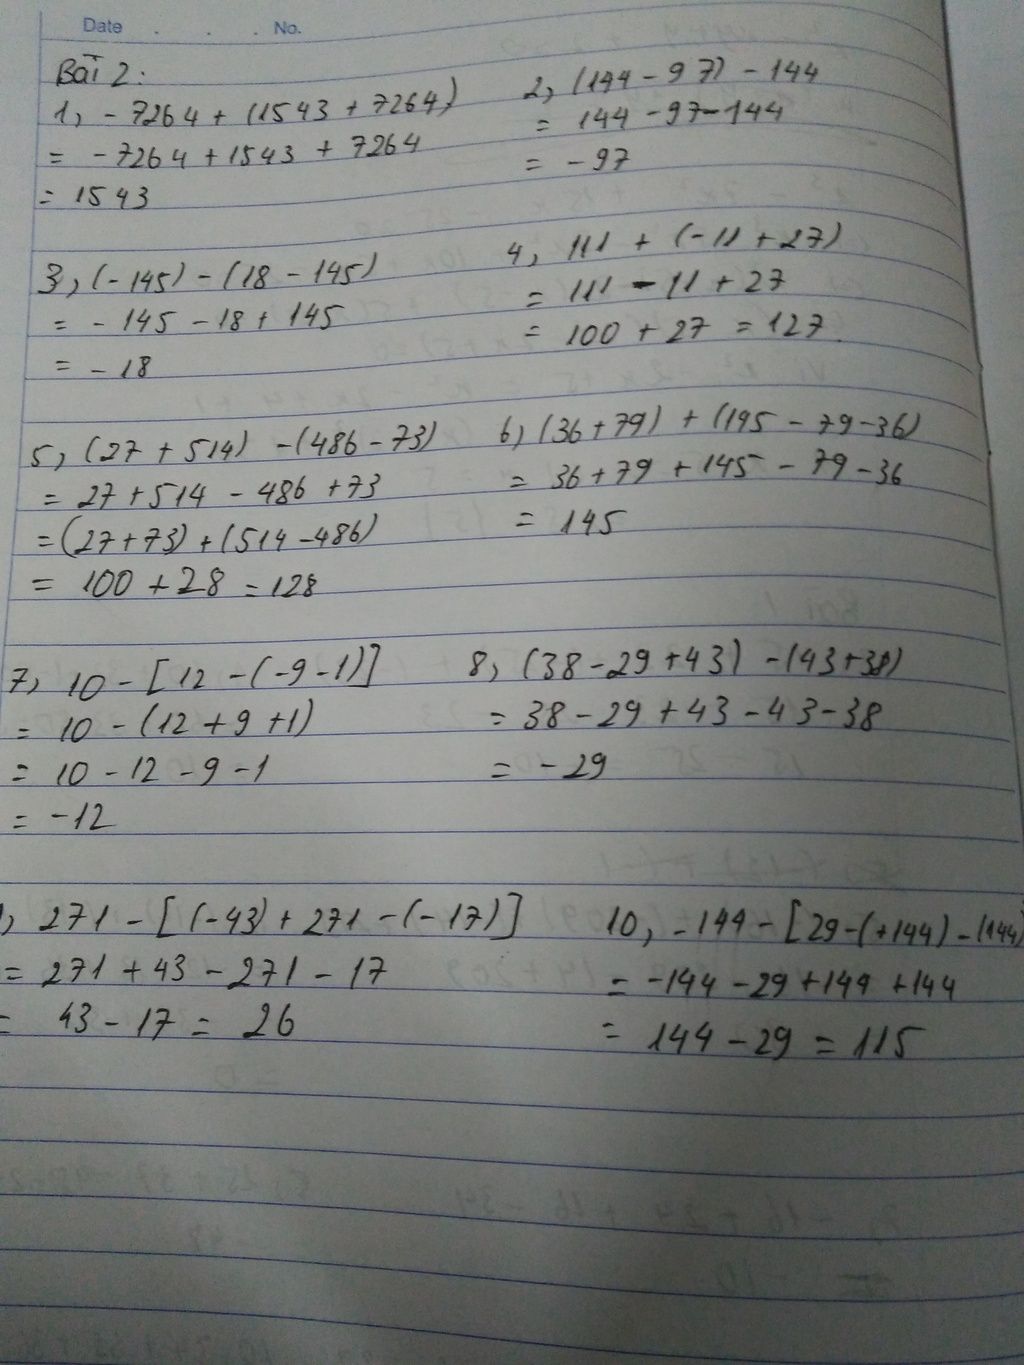 Date . . . No.
Bài 2:
1, - 7264 + (1543 + 7264)
= - 7264 + 1543 + 7264
= 1543
2, (144 - 97) - 144
= 144 - 97 - 144
= - 97
3, (-145) - (18 - 145)
= - 145 - 18 + 145
= - 18
4, 111 + (-11 + 27)
= 111 - 11 + 27
= 100 + 27 = 127.
5, (27 + 514) - (486 - 73)
= 27 + 514 - 486 + 73
= (27 + 73) + (514 - 486)
= 100 + 28 = 128
6, (36 + 79) + (145 - 79 - 36)
= 36 + 79 + 145 - 79 - 36
= 145
7, 10 - [12 - (-9 - 1)]
= 10 - (12 + 9 + 1)
= 10 - 12 - 9 - 1
= -12
8, (38 - 29 + 43) - (43 + 38)
= 38 - 29 + 43 - 43 - 38
= - 29
, 271 - [(-43) + 271 - (-17)]
= 271 + 43 - 271 - 17
= 43 - 17 = 26
10, - 144 - [29 - (+144) - (144)
= -144 - 29 + 144 + 144
= 144 - 29 = 115